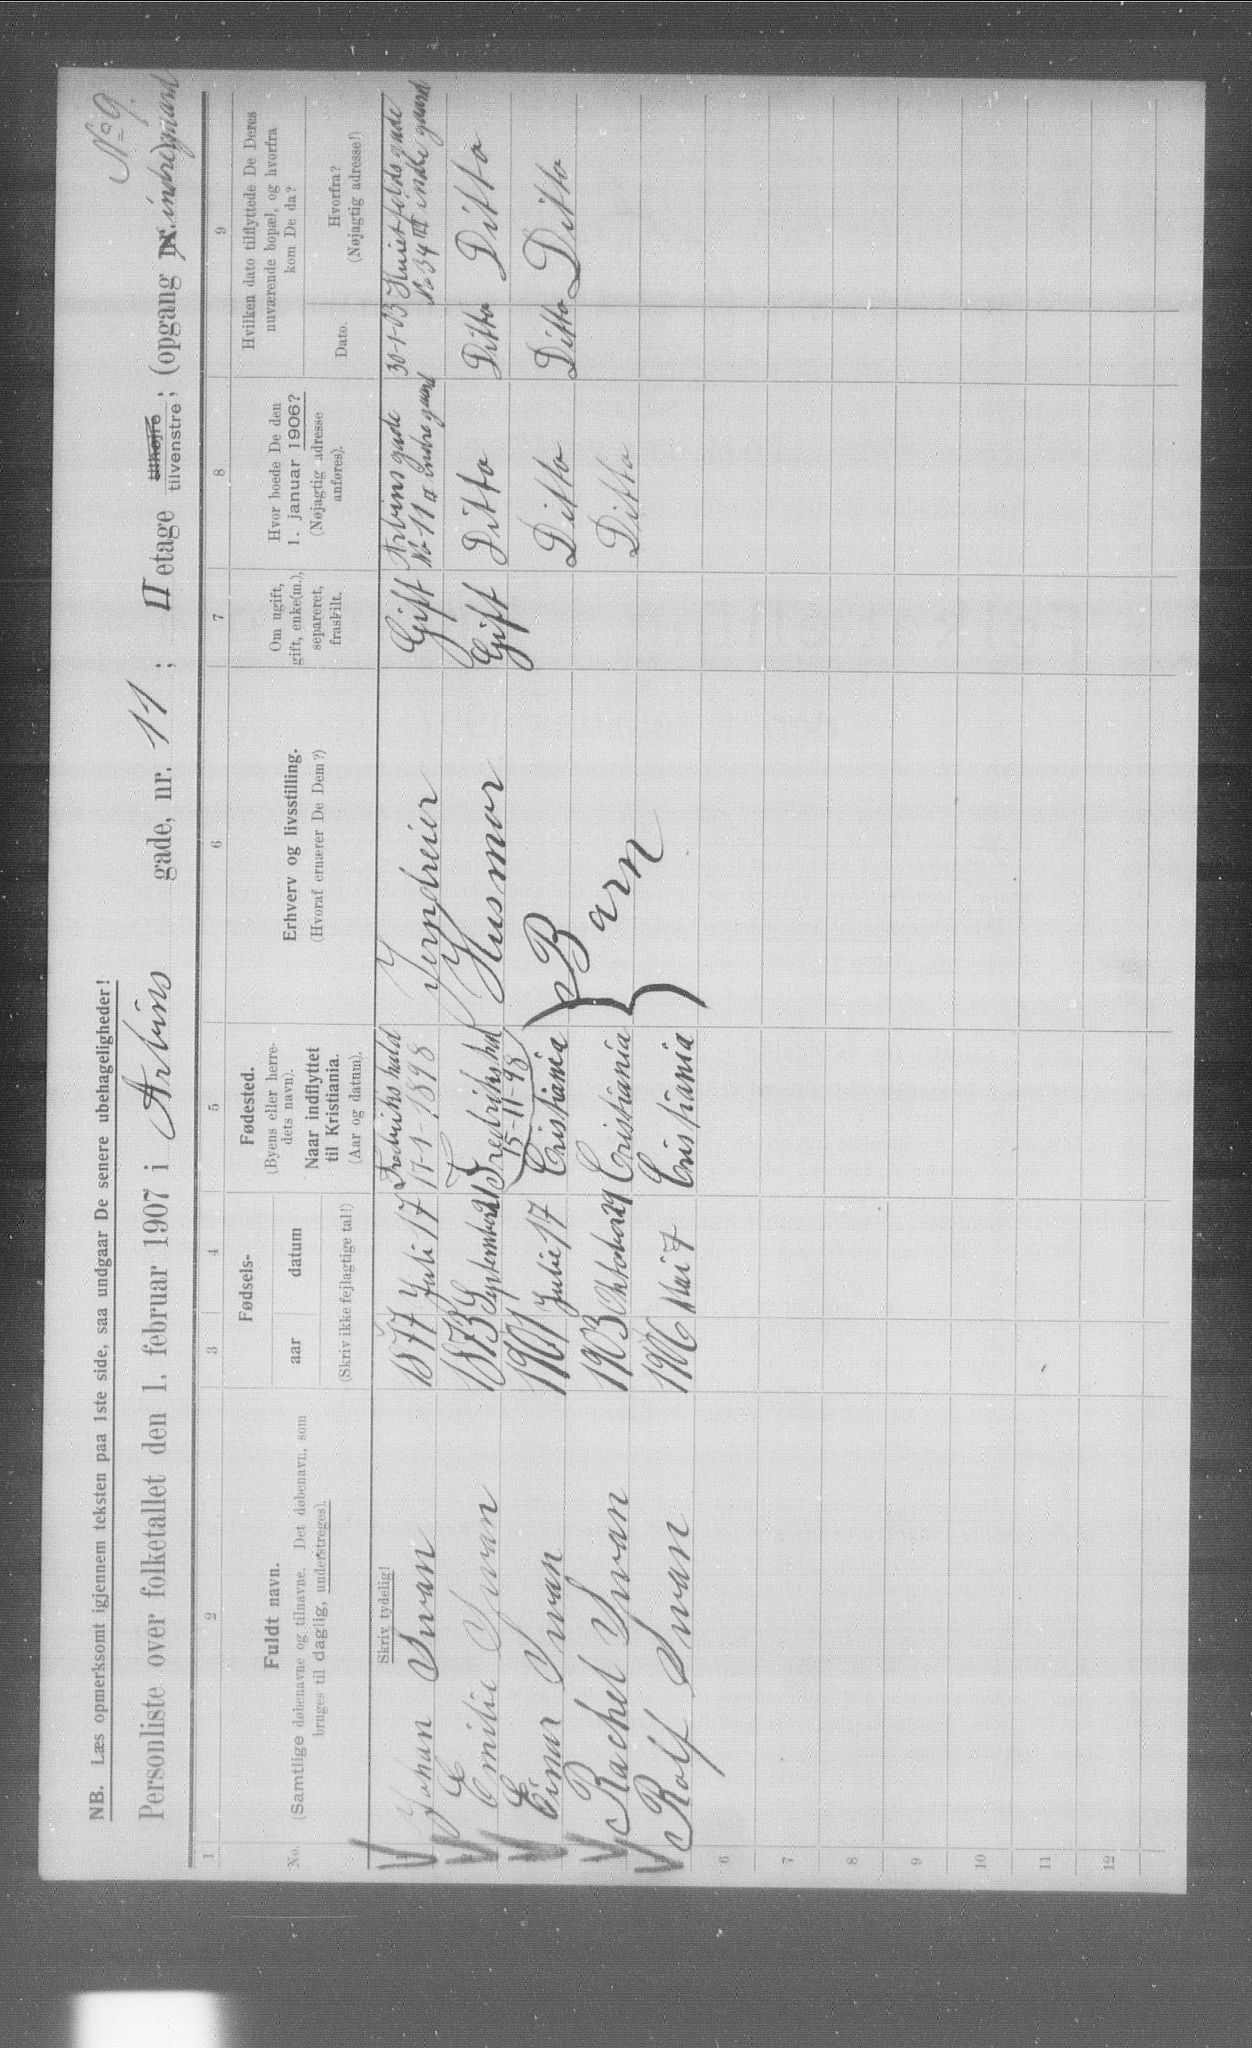 No 9.
NB. Læs opmerksomt igjennem teksten paa 1ste side, saa undgaar De senere ubehageligheder!
Personliste over folketallet den 1. februar 1907 i Arbins gade, nr. 11 ; II etage tilhøjre tilvenstre ; (opgang nr. indre gaard
1 2 3 4 5 6 7 8 9
No.
Fuldt navn.
(Samtlige døbenavne og tilnavne. Det døbenavn, som
bruges til daglig, understreges).
Fødsels-
aar datum
(Skriv ikke fejlagtige tal!)
Fødested.
(Byens eller herre-
dets navn).
Naar indflyttet
til Kristiania.
(Aar og datum).
Erhverv og livsstilling.
(Hvoraf ernærer De Dem?)
Om ugift,
gift, enke(m.),
separeret,
fraskilt.
Hvor boede De den
1. januar 1906?
(Nøjagtig adresse
anføres).
Hvilken dato tilflyttede De Deres
nuværende bopæl, og hvorfra
kom De da?
Dato.
Hvorfra?
(Nøjagtig adresse!)
Skriv tydelig!
Johan Svan 1877 Juli 17 Fredrikshald 17-1-1898 Jerndreier Gift Arbinsgade No 11 II indre gaard 30-1-03 No 34 III indre gaard
Emilie Svan 1873 September 21 Fredrikshal 15-11-98 Husmor Gift Ditto Ditto Ditto
Einar Svan 1901 Julie 17 Cristiania Barn Ditto Ditto Ditto
Rachel Svan 1903 Oktober 29 Cristiania Ditto
Rolf Svan 1906 Mai 7 Cristiania
6
7
8
9
10
11
12